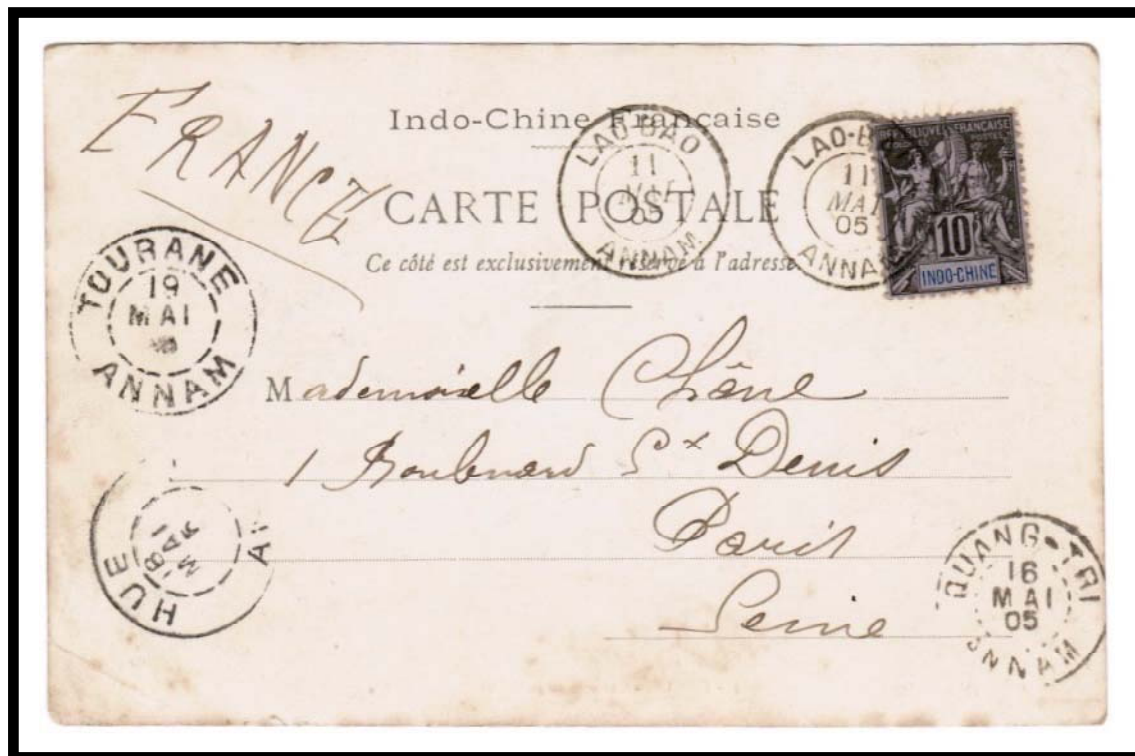 FRANCE
Indo-Chine Française
CARTE POSTALE
Ce côté est exclusivement réservé à l'adresse.
LAO-BAO
11
MAI
05
ANNAM
LAO-B
11
MAI
05
ANNAM
RÉPUBLIQUE FRANÇAISE
10
INDO-CHINE
TOURANE
19
MAI
ANNAM
Mademoiselle Chêne
1 Boulevard St Denis
Paris
Seine
HUE
18
MAI
QUANG-TRI
16
MAI
05
ANNAM